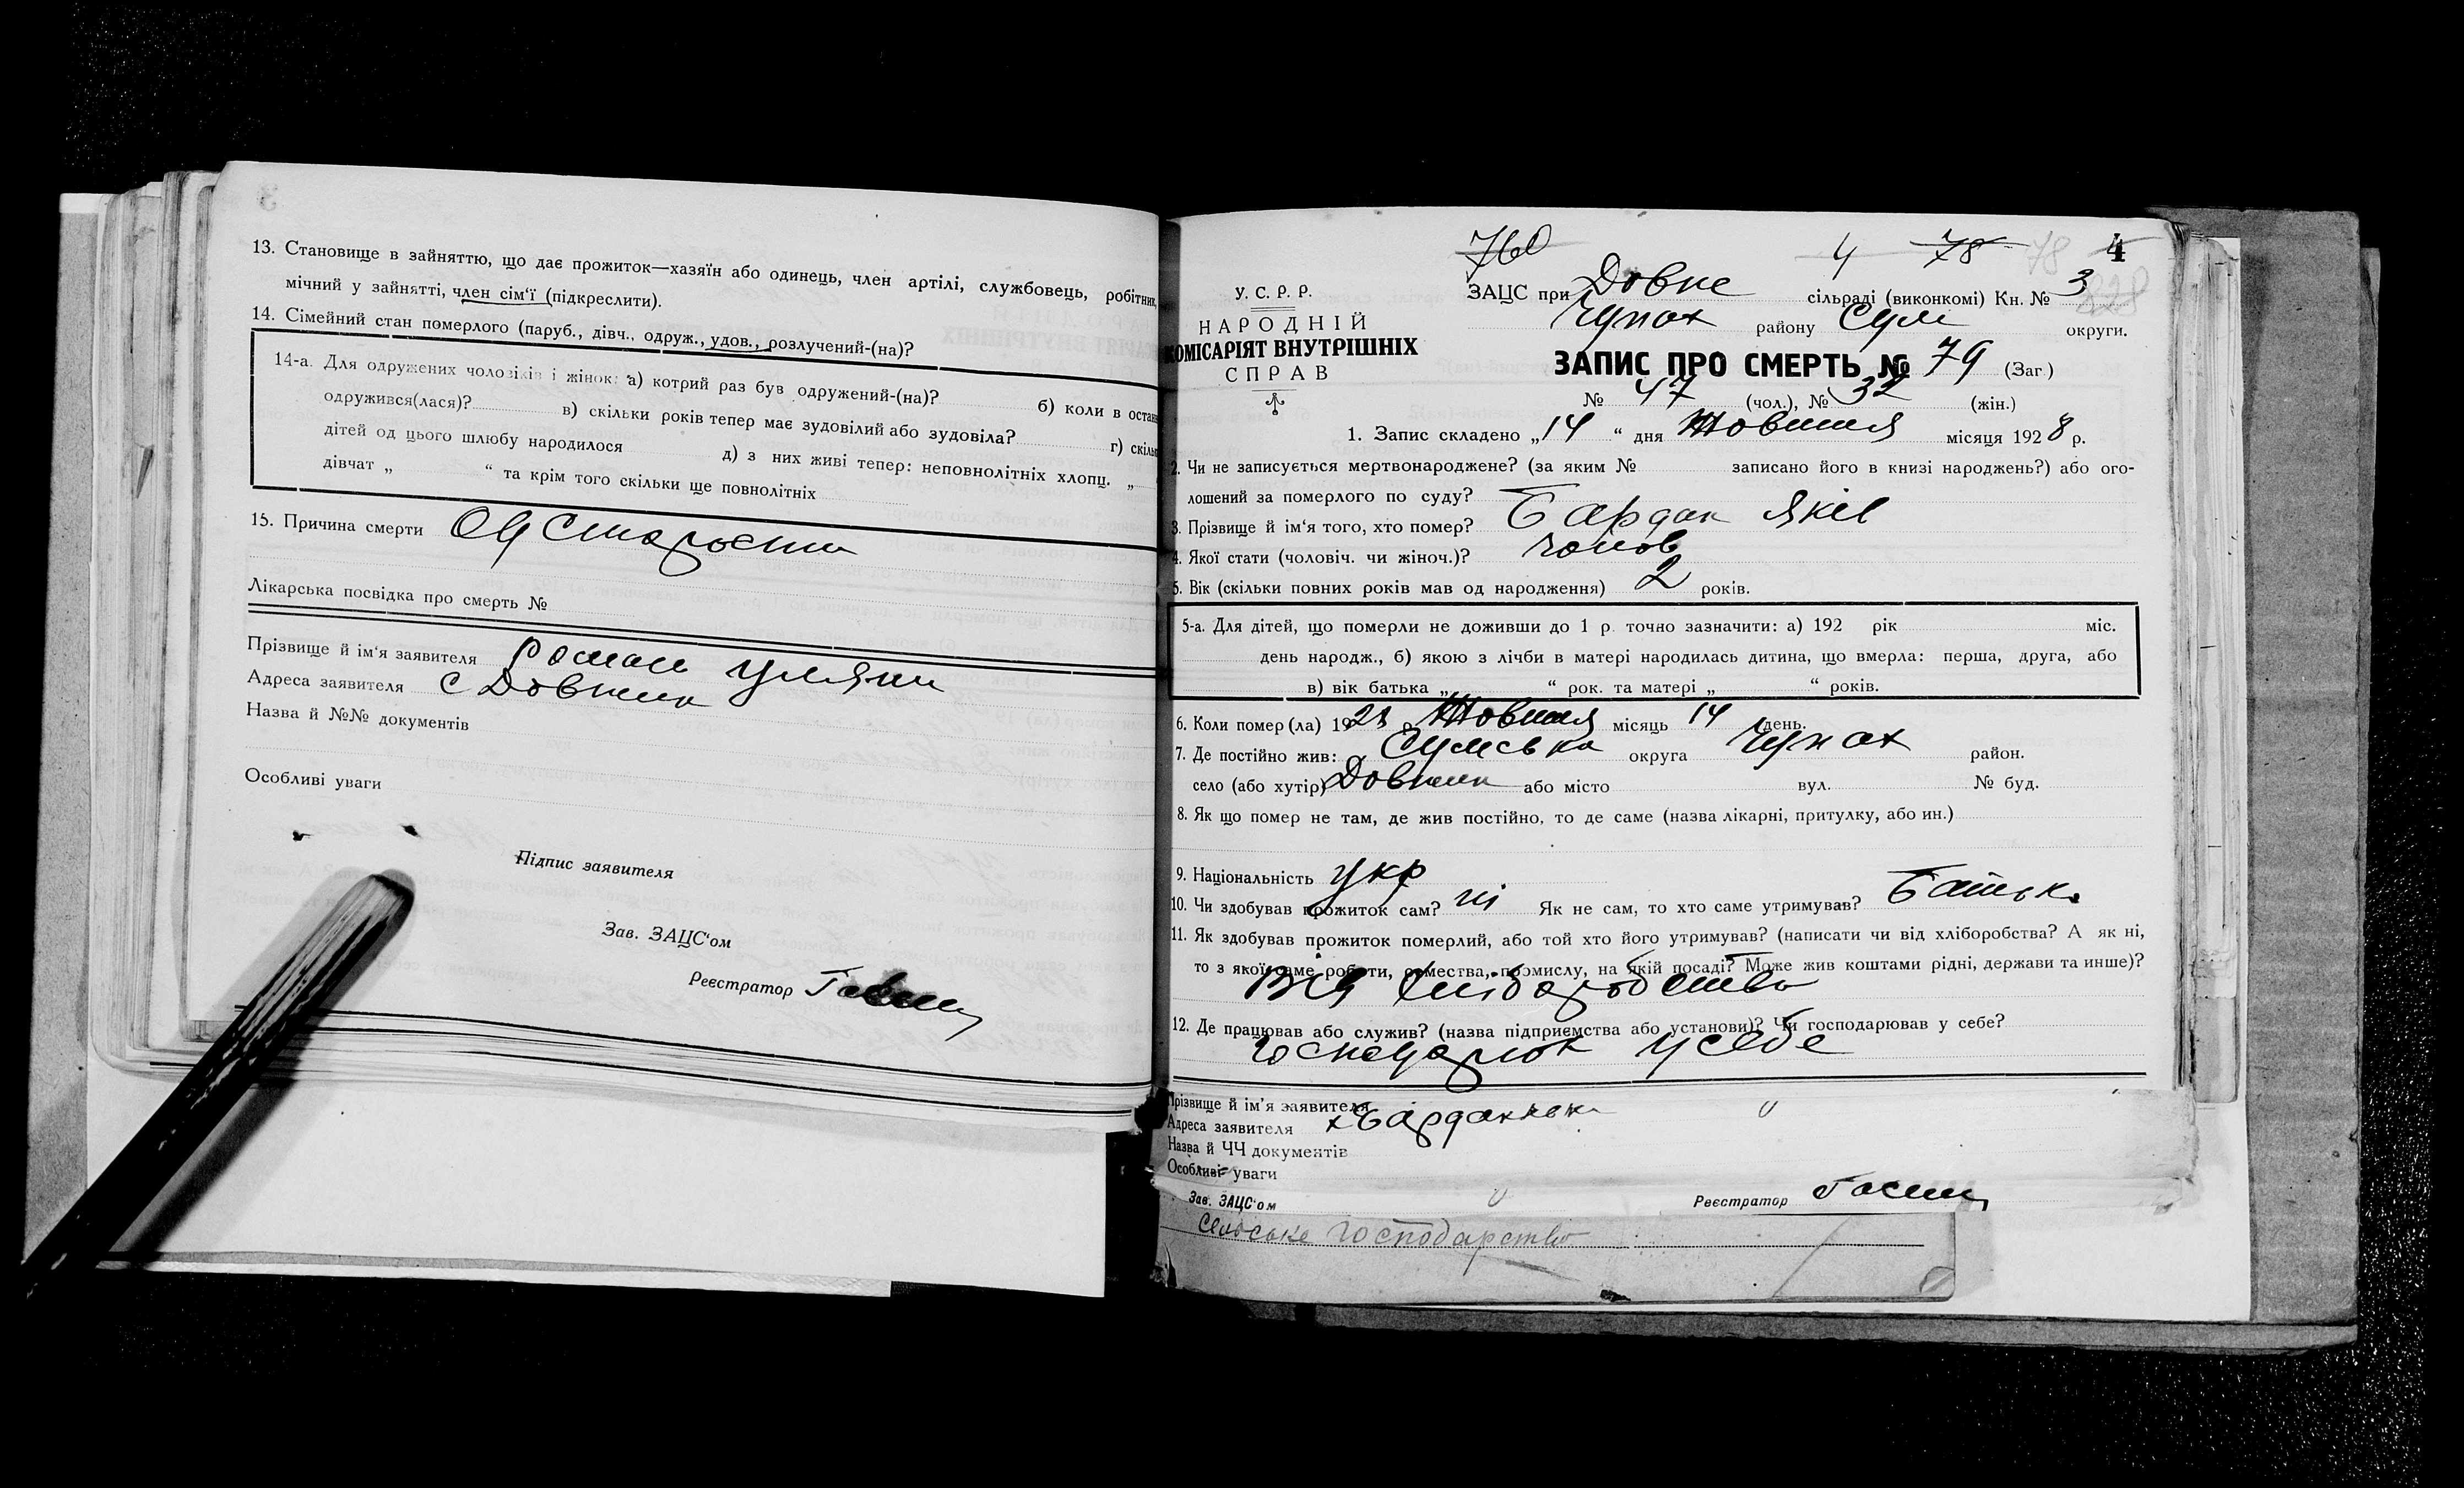 3
13. Становище в зайняттю, що дає прожиток—хазяїн або одинець, член артілі, службовець, робітник,
мічний у зайнятті, член сім‘ї (підкреслити).
14. Сімейний стан померлого (паруб., дівч., одруж., удов., розлучений-(на)?
14-а. Для одружених чоловіків і жінок: а) котрий раз був одружений-(на)? б) коли в остан
одружився(лася)? в) скільки років тепер має зудовілий або зудовіла? г) скіль
дітей од цього шлюбу народилося д) з них живі тепер: неповнолітніх хлопц. „
дівчат „ “ та крім того скільки ще повнолітніх
15. Причина смерти Од старости
Лікарська посвідка про смерть №
Прізвище й ім‘я заявителя Роман
Адреса заявителя с Довжик
Назва й №№ документів
Особливі уваги
Підпис заявителя
Зав. ЗАЦС‘ом
Реєстратор
760 4 78 78 4
У. С. Р. Р.
НАРОДНІЙ
КОМІСАРІЯТ ВНУТРІШНІХ
СПРАВ
ЗАЦС при Довже сільраді (виконкомі) Кн. № 3
Чупах району Сум округи.
ЗАПИС ПРО СМЕРТЬ № 79 (Заг.)
№ 47 (чол.), № 32 (жін.)
1. Запис складено „14“ дня Жовтня місяця 1928 р.
2. Чи не записується мертвонароджене? (за яким № записано його в книзі народжень?) або ого-
лошений за померлого по суду?
3. Прізвище й ім‘я того, хто помер? Бардак Яків
4. Якої стати (чоловіч. чи жіноч.)? чолов
5. Вік (скільки повних років мав од народження) 2 років.
5-а. Для дітей, що померли не доживши до 1 р. точно зазначити: а) 192 рік міс.
день народж., б) якою з лічби в матері народилась дитина, що вмерла: перша, друга, або
в) вік батька „ “ рок. та матері „ “ років.
6. Коли помер(ла) 1928 р Жовтня місяць 14 день.
7. Де постійно жив: Сумська округа Чупах район.
село (або хутір) Довжик або місто вул. № буд.
8. Як що помер не там, де жив постійно, то де саме (назва лікарні, притулку, або ин.)
9. Національність укр
10. Чи здобував прожиток сам? ні Як не сам, то хто саме утримував? Батько
11. Як здобував прожиток померлий, або той хто його утримував? (написати чи від хліборобства? А як ні,
то з якої саме роботи, ремества, промислу, на якій посаді? Може жив коштами рідні, держави та инше)?
Від хліборобства
12. Де працював або служив? (назва підприємства або установи)? Чи господарював у себе?
господарюв у себе
Прізвище й ім‘я заявителя
Адреса заявителя
Назва й ЧЧ документів
Особливі уваги
Зав. ЗАЦС‘ом Реєстратор
сельське господарство